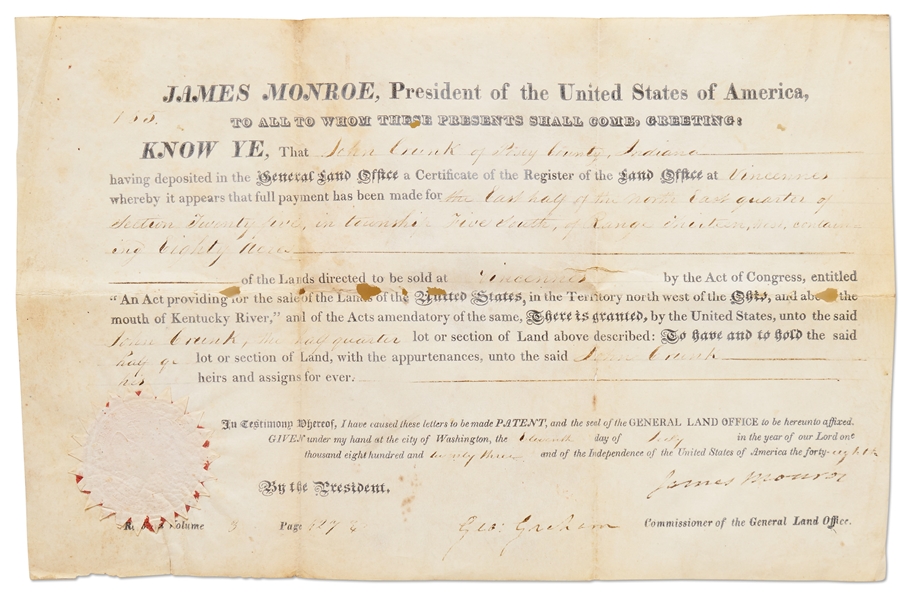 JAMES MONROE, President of the United States of America,
TO ALL TO WHOM THESE PRESENTS SHALL COME, GREETING:
KNOW YE, That Crunk of Posey County, Indiana
having deposited in the General Land Office a Certificate of the Register of the Land Office at Vincennes
whereby it appears that full payment has been made for the East half of the north East quarter of
Section Twenty five, in township Five South, of Range thirteen, west, contain
ing Eighty Acres
of the Lands directed to be sold at Vincennes by the Act of Congress, entitled
"An Act providing for the sale of the Lands of the United States, in the Territory north west of the Ohio, and above the
mouth of Kentucky River," and of the Acts amendatory of the same, There is granted, by the United States, unto the said
Crunk, the half quarter lot or section of Land above described: To have and to hold the said
half qr lot or section of Land, with the appurtenances, unto the said Crunk
his heirs and assigns for ever.
In Testimony Whereof, I have caused these letters to be made PATENT, and the seal of the GENERAL LAND OFFICE to be hereunto affixed.
GIVEN under my hand at the city of Washington, the eleventh day of July in the year of our Lord one
thousand eight hundred and twenty three and of the Independence of the United States of America the forty-eighth
James Monroe
By the President,
Volume 3 Page
Geo: Graham Commissioner of the General Land Office.